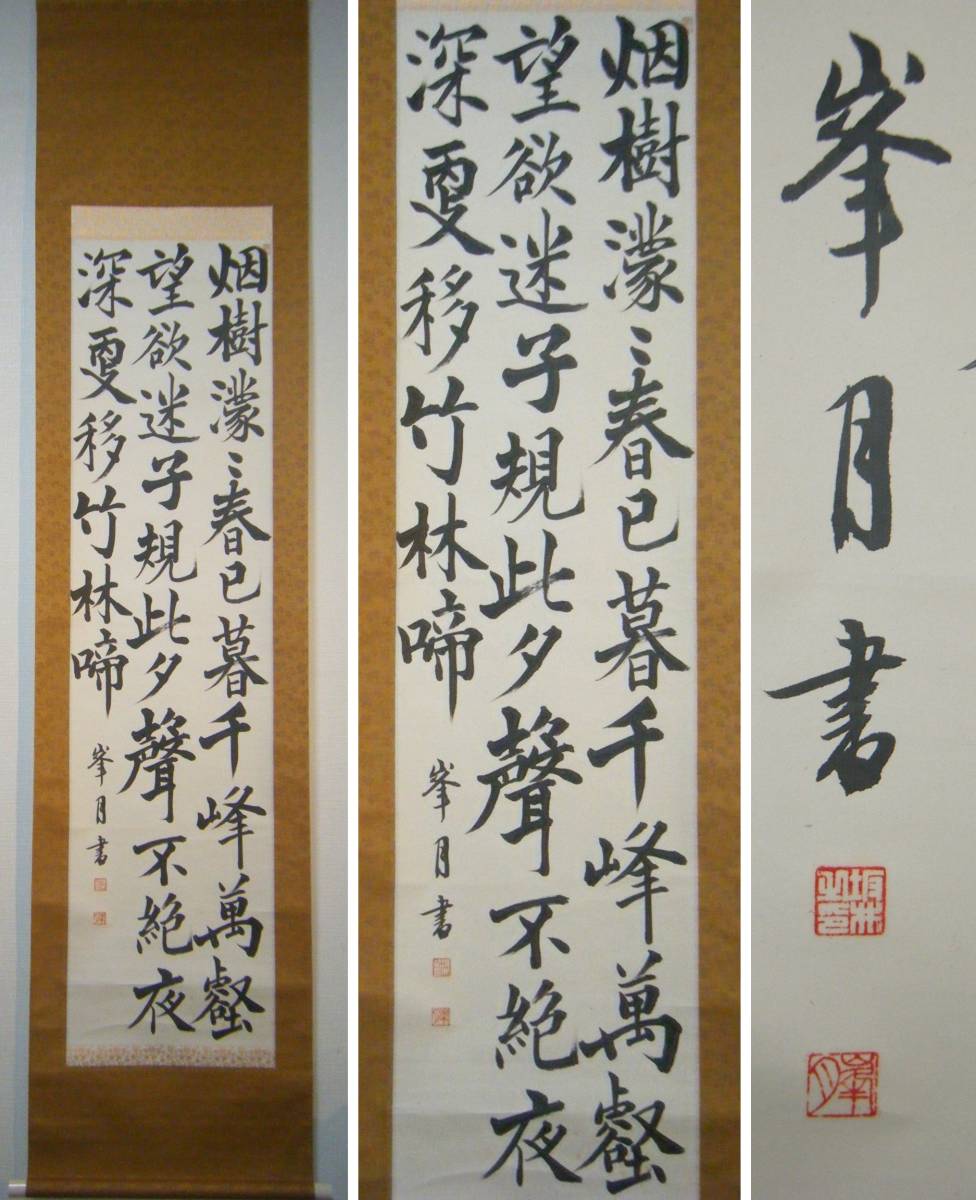 烟樹濛〻春已暮千峰萬壑
望欲迷子規此夕聲不絶夜
深更移竹林啼
峯月書
烟樹濛〻春已暮千峰萬壑
望欲迷子規此夕聲不絶夜
深更移竹林啼
峯月書
峯月書
峯月